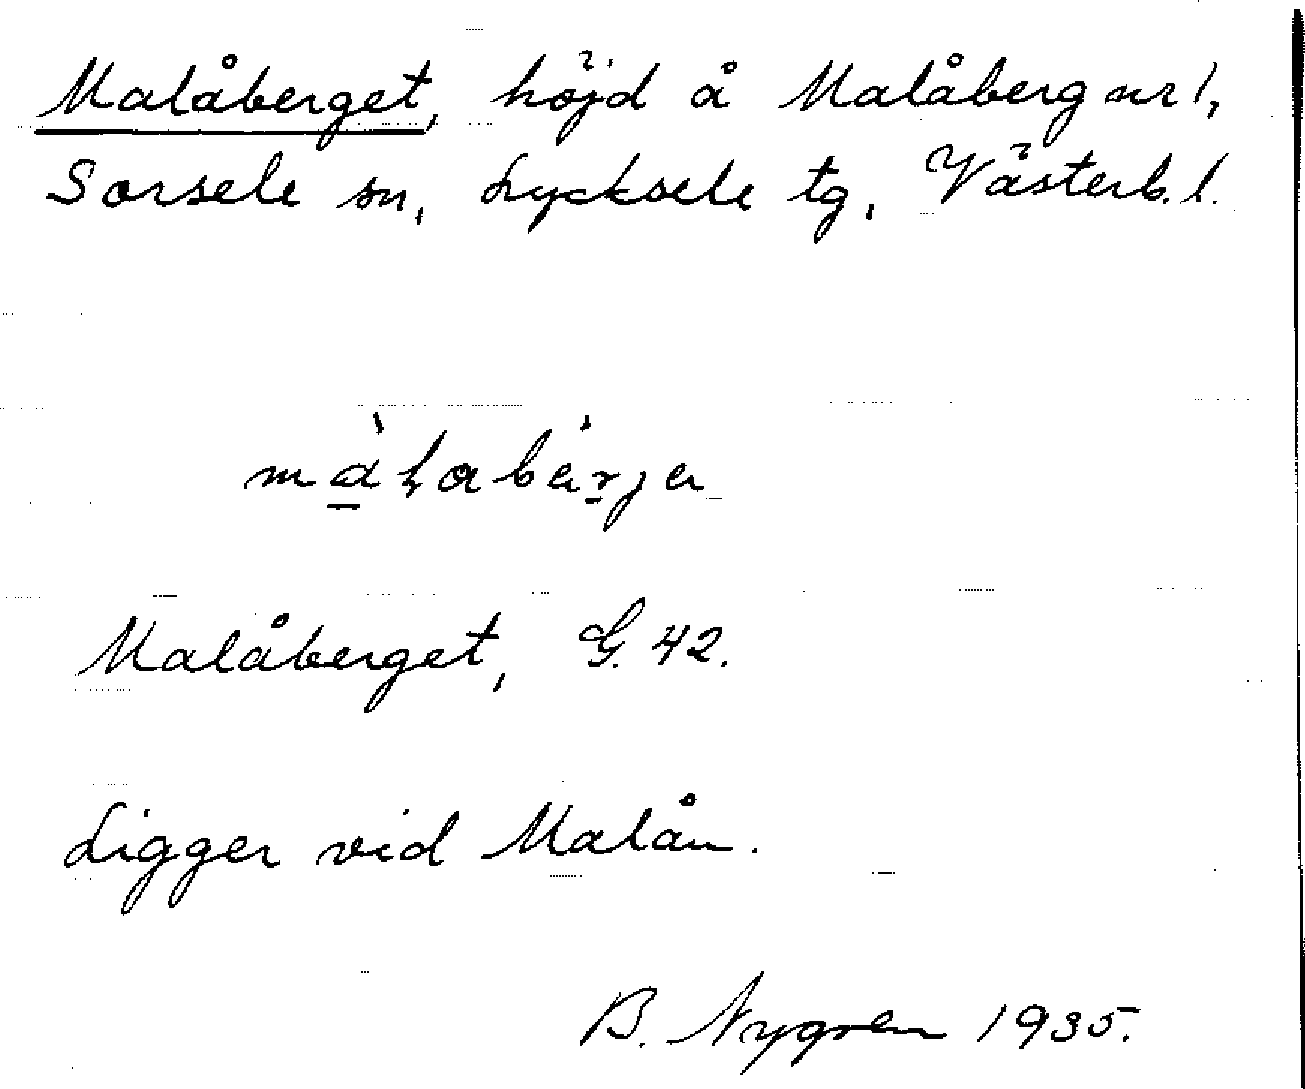 Malåberget, höjd å Malåberg nr 1,
Sorsele sn, Lycksele tg, Västerb. l.
Malåberget, G. 42.
Ligger vid Malån.
B. Nygren 1935.